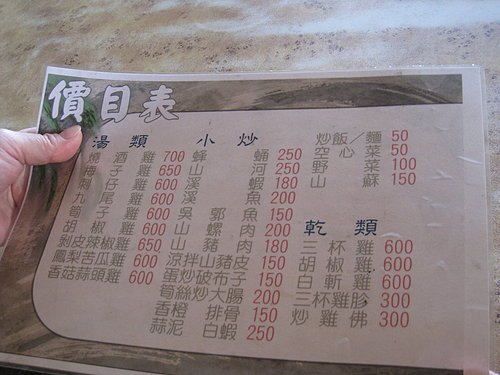 價目表
湯類
燒酒雞 700
梅子雞 650
刺仔雞 600
九尾雞 600
筍子雞 600
胡椒雞 600
剝皮辣椒雞 650
鳳梨苦瓜雞 600
香菇蒜頭雞 600
小炒
蜂蛹 250
山河 250
溪蝦 180
溪魚 200
吳郭魚 150
山螺肉 200
山豬肉 180
涼拌山豬皮 150
蛋炒破布子 150
筍絲炒大腸 200
香橙排骨 150
蒜泥白蝦 250
炒飯/麵 50
空心菜 50
野菜 100
山蘇 150
乾類
三杯雞 600
胡椒雞 600
白斬雞 600
三杯雞胗 300
炒雞佛 300